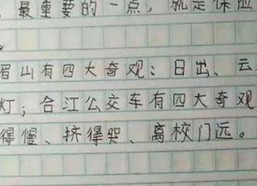 最重要的一点，就是保险
。
眉山有四大奇观：日出、云
灯；合江公交车有四大奇观
得慢、挤得哭、离校门远。